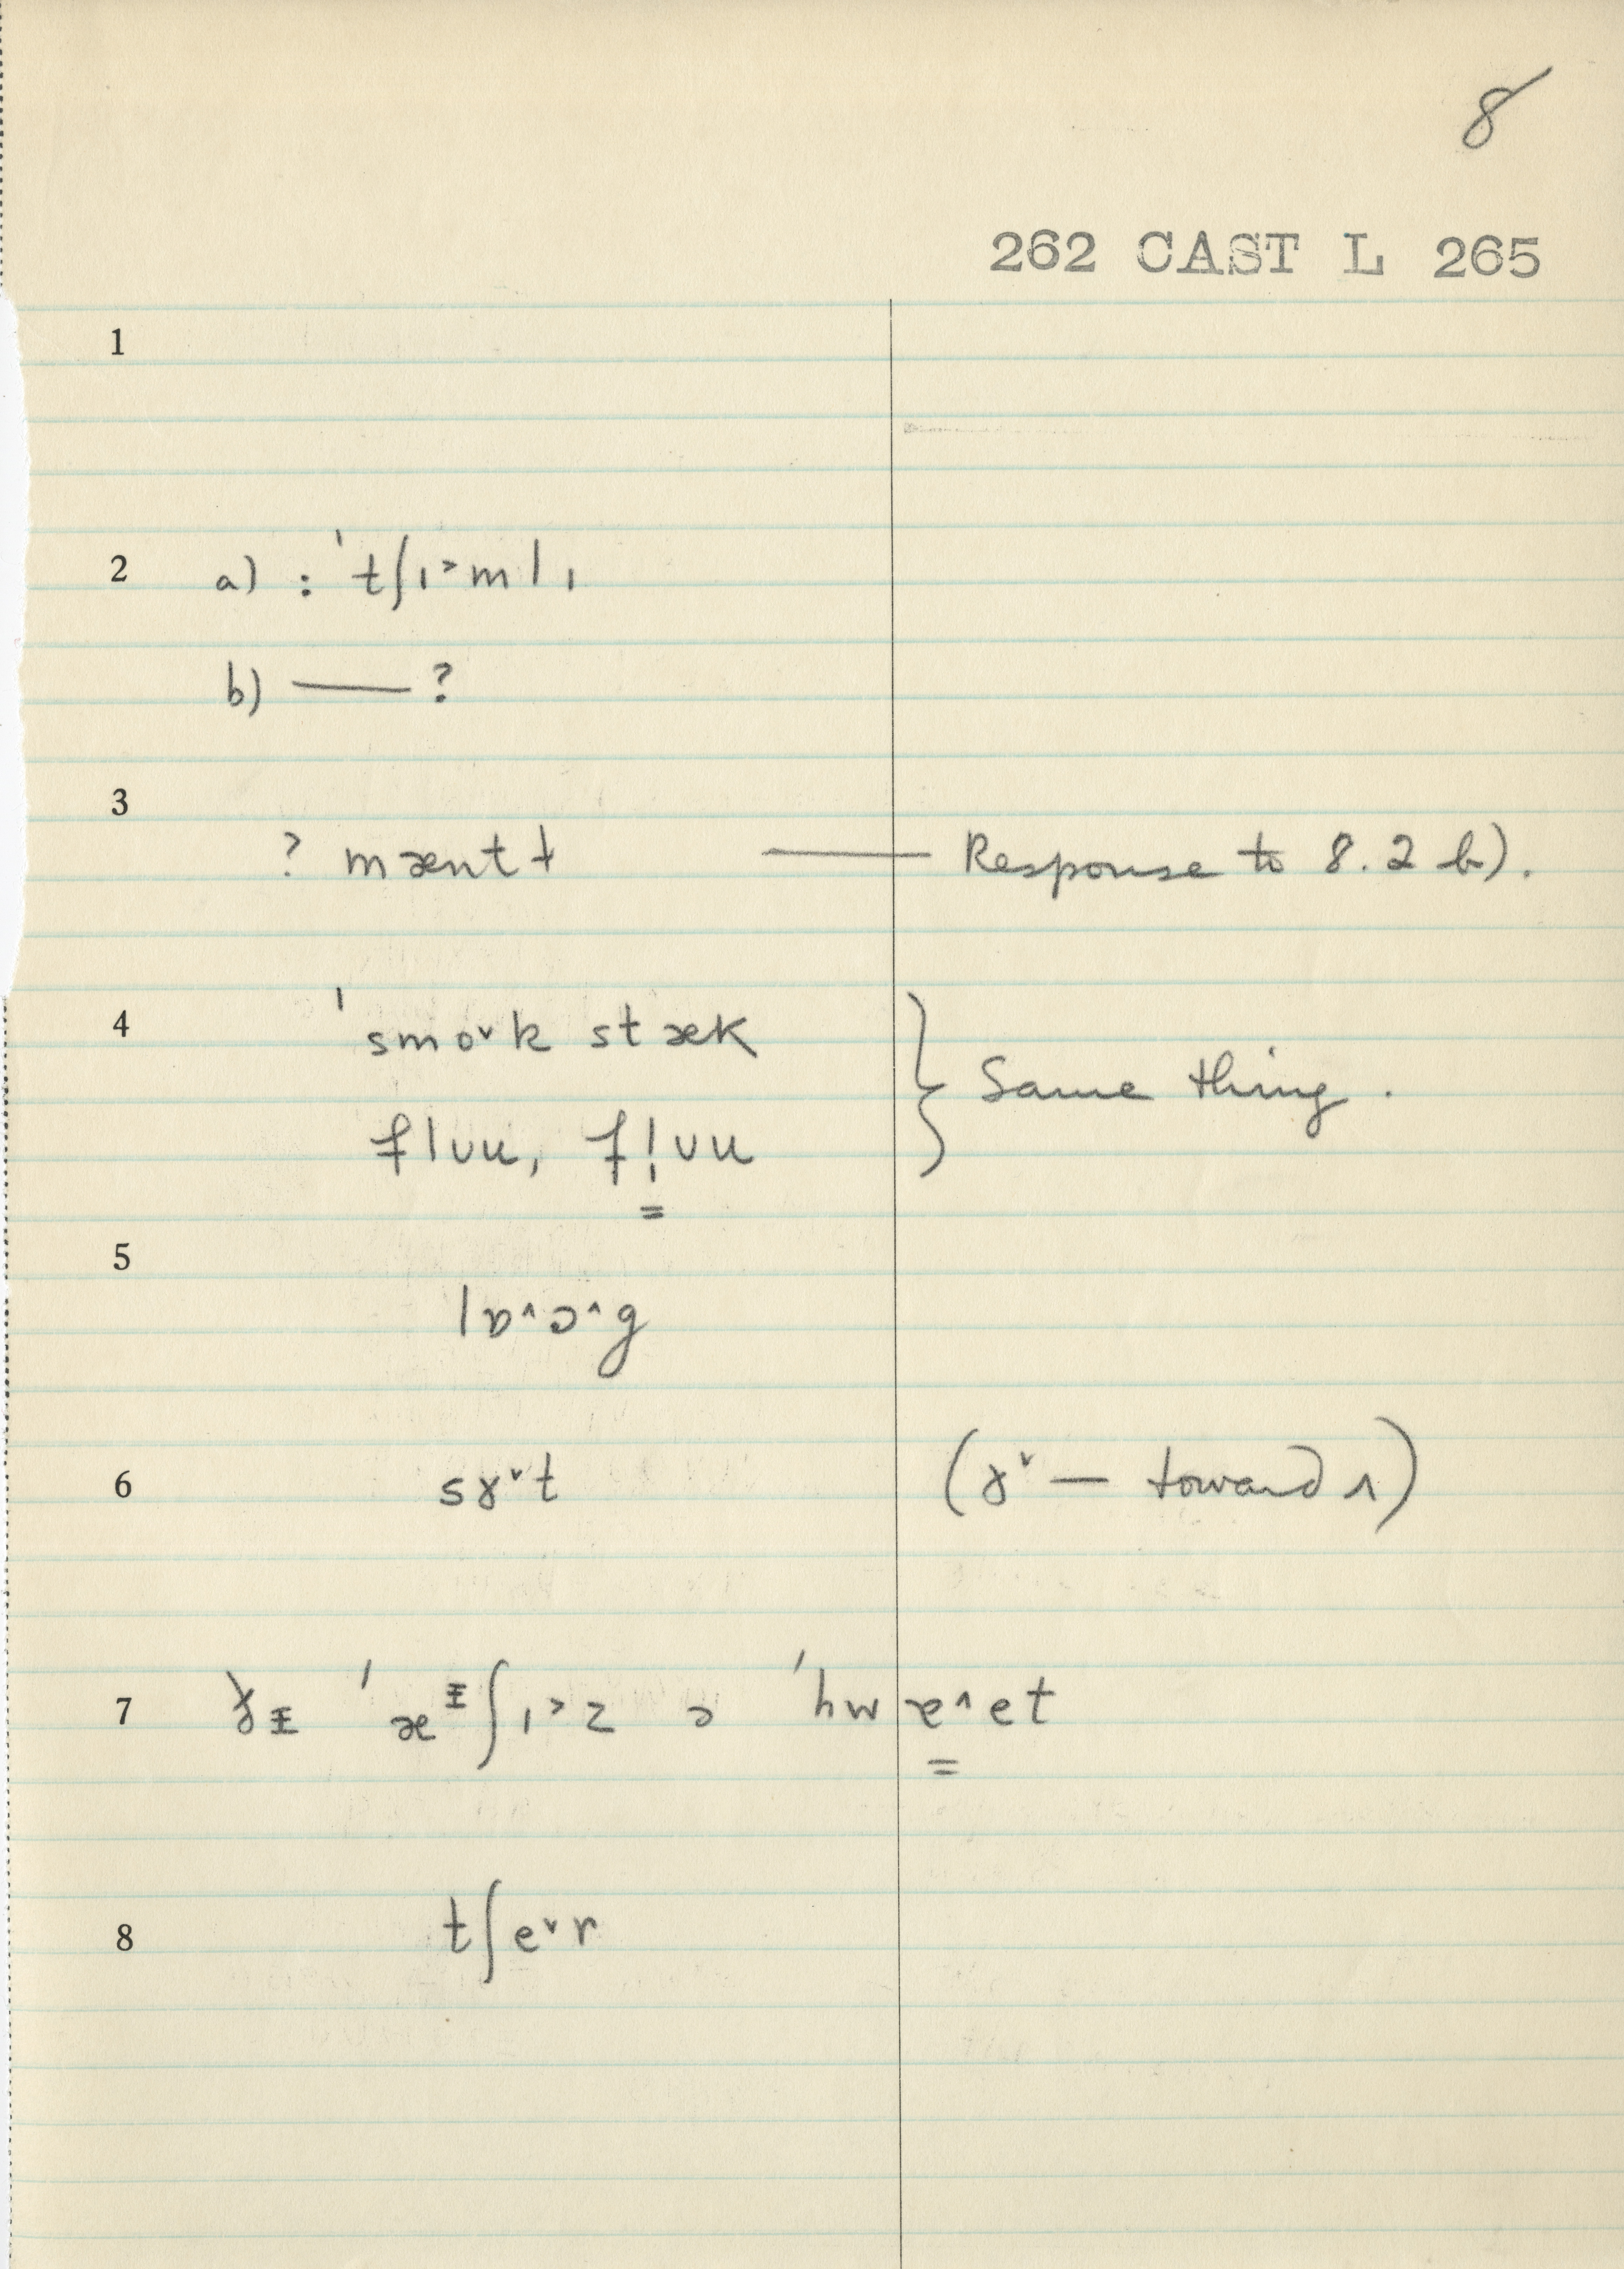 8
262 CAST L 265
1
2 a) : ˈtʃɪ˃mlɪ
b) — ?
3
? mæntɫ — Response to 8.2 b).
4 ˈsmo˅k stæk
flʊu, fl̩ʊu } Same thing.
5
lɒ˄ɔ˄g
6 sɤ˅t (ɤ˅ — toward ʌ)
7 ˈæᵻʃɪ˃z ɔ ˈhwæ˄et
8 tʃe˅r